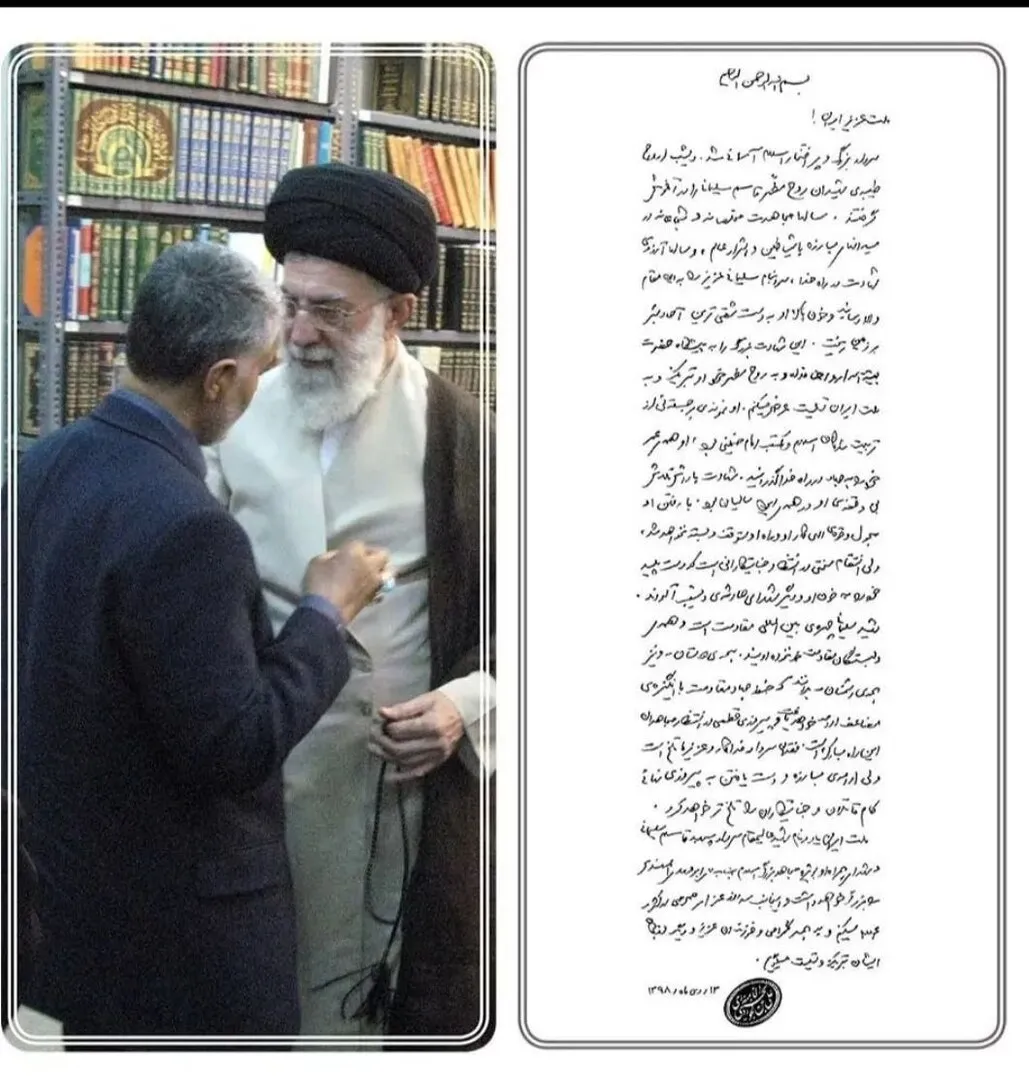 بسم الله الرحمن الرحیم
ملت عزیز ایران!
سردار بزرگ و پرافتخار اسلام آسمانی شد. دیشب ارواح
طیبه‌ی شهیدان روح مطهر قاسم سلیمانی را در آغوش
گرفتند. سالها مجاهدت مخلصانه و شجاعانه در
میدانهای مبارزه با شیاطین و اشرار عالم، و سالها آرزوی
شهادت در راه خدا، سرانجام سلیمانی عزیز را به این مقام
والا رسانید و خون پاک او به دست شقی ترین آحاد بشر
بر زمین ریخت. این شهادت بزرگ را به پیشگاه حضرت
بقیة الله ارواحنا فداه و به روح مطهر خود او تبریک و به
ملت ایران تسلیت عرض میکنم. او نمونه‌ی برجسته‌ئی از
تربیت شدگان اسلام و مکتب امام خمینی بود، او همه‌ی عمر
خود را به جهاد در راه خدا گذرانید. شهادت پاداش تلاش
بی وقفه‌ی او در همه‌ی این سالیان بود. با رفتن او
بحول و قوه‌ی الهی کار او و راه او متوقف و بسته نخواهد شد،
ولی انتقام سختی در انتظار جنایتکارانی است که دست پلید
خود را به خون او و دیگر شهدای حادثه‌ی دیشب آلودند.
شهید سلیمانی چهره‌ی بین المللی مقاومت است و همه‌ی
دلبستگان مقاومت خونخواه اویند. همه‌ی دوستان - و نیز
همه‌ی دشمنان - بدانند که خط جهاد مقاومت با انگیزه‌ی
مضاعف ادامه خواهد یافت و پیروزی قطعی در انتظار مجاهدان
این راه مبارک است. فقدان سردار فداکار و عزیز ما تلخ است
ولی ادامه‌ی مبارزه و دست یافتن به پیروزی نهائی
کام قاتلان و جنایتکاران را تلخ تر خواهد کرد.
ملت ایران یاد و نام شهید عالیمقام سردار سپهبد قاسم سلیمانی
و شهدای همراه او بویژه مجاهد بزرگ اسلام جناب آقای ابومهدی المهندس
را بزرگ خواهد داشت و اینجانب سه روز عزای عمومی در کشور
اعلام میکنم و به همسر گرامی و فرزندان عزیز و دیگر بستگان
ایشان تبریک و تسلیت میگویم.
۱۳/دی ماه/۱۳۹۸